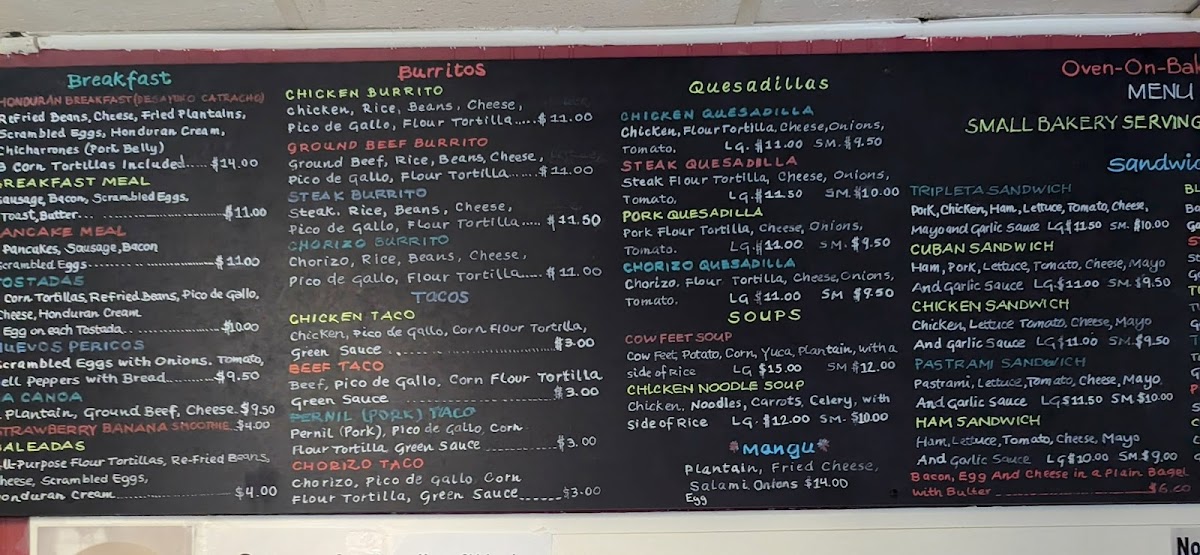 Breakfast
HONDURAN BREAKFAST (DESAYUNO CATRACHO)
Refried Beans, Cheese, Fried Plantains,
Scrambled Eggs, Honduran Cream,
Chicharrones (Pork Belly)
3 Corn Tortillas Included..... $14.00
BREAKFAST MEAL
Sausage, Bacon, Scrambled Eggs,
Toast, Butter... $11.00
PANCAKE MEAL
Pancakes, Sausage, Bacon
Scrambled Eggs... $11.00
TOSTADAS
Corn Tortillas, Refried Beans, Pico de Gallo,
Cheese, Honduran Cream
Egg on each Tostada... $10.00
HUEVOS PERICOS
Scrambled Eggs with Onions. Tomato,
Bell Peppers with Bread... $9.50
LA CANOA
Plantain, Ground Beef, Cheese. $9.50
STRAWBERRY BANANA SMOOTHIE.. $4.00
BALEADAS
All-Purpose Flour Tortillas, Re-Fried Beans,
Cheese, Scrambled Eggs,
Honduran Cream... $4.00
Burritos
CHICKEN BURRITO
Chicken, Rice, Beans, Cheese,
Pico de Gallo, Flour Tortilla..... $11.00
GROUND BEEF BURRITO
Ground Beef, Rice, Beans, Cheese,
Pico de Gallo, Flour Tortilla..... $11.00
STEAK BURRITO
Steak. Rice, Beans, Cheese,
Pico de Gallo, Flour Tortilla..... $11.50
CHORIZO BURRITO
Chorizo, Rice, Beans, Cheese,
Pico de Gallo, Flour Tortilla..... $11.00
TACOS
CHICKEN TACO
Chicken, Pico de Gallo, Corn Flour Tortilla,
Green Sauce... $3.00
BEEF TACO
Beef, Pico de Gallo, Corn Flour Tortilla
Green Sauce... $3.00
PERNIL (PORK) TACO
Pernil (Pork), Pico de Gallo, Corn
Flour Tortilla Green Sauce... $3.00
CHORIZO TACO
Chorizo, Pico de Gallo Corn
Flour Tortilla, Green Sauce... $3.00
Quesadillas
CHICKEN QUESADILLA
Chicken, Flour Tortilla, Cheese, Onions,
Tomato. LG. $11.00 SM. $9.50
STEAK QUESADILLA
Steak Flour Tortilla, Cheese, Onions,
Tomato, LG. $11.50 SM. $10.00
PORK QUESADILLA
Pork Flour Tortilla, Cheese, Onions,
Tomato. LG. $11.00 SM. $9.50
CHORIZO QUESADILLA
Chorizo. Flour Tortilla, Cheese, Onions,
Tomato. LG $11.00 SM $9.50
SOUPS
COW FEET SOUP
Cow Feet, Potato, Corn, Yuca, Plantain, with a
side of Rice LG $15.00 SM $12.00
CHICKEN NOODLE SOUP
Chicken. Noodles, Carrots, Celery, with
Side of Rice LG. $12.00 SM. $10.00
Mangu
Plantain, Fried Cheese,
Salami, Onions $14.00
Egg
Oven-On-Bak
MENU
SMALL BAKERY SERVING
Sandwic
TRIPLETA SANDWICH
Pork, Chicken, Ham, Lettuce, Tomato, Cheese,
Mayo and Garlic Sauce LG $11.50 SM. $10.00
CUBAN SANDWICH
Ham, Pork, Lettuce, Tomato, Cheese, Mayo
And Garlic Sauce LG $11.00 SM. $9.50
CHICKEN SANDWICH
Chicken, Lettuce Tomato, Cheese, Mayo
And Garlic Sauce LG $11.00 SM. $9.50
PASTRAMI SANDWICH
Pastrami, Lettuce, Tomato, Cheese, Mayo
And Garlic Sauce LG $11.50 SM $10.00
HAM SANDWICH
Ham, Lettuce, Tomato, Cheese, Mayo
And Garlic Sauce LG $10.00 SM $9.00
Bacon, Egg And Cheese in a Plain Bagel
with Butter... $6.00
No